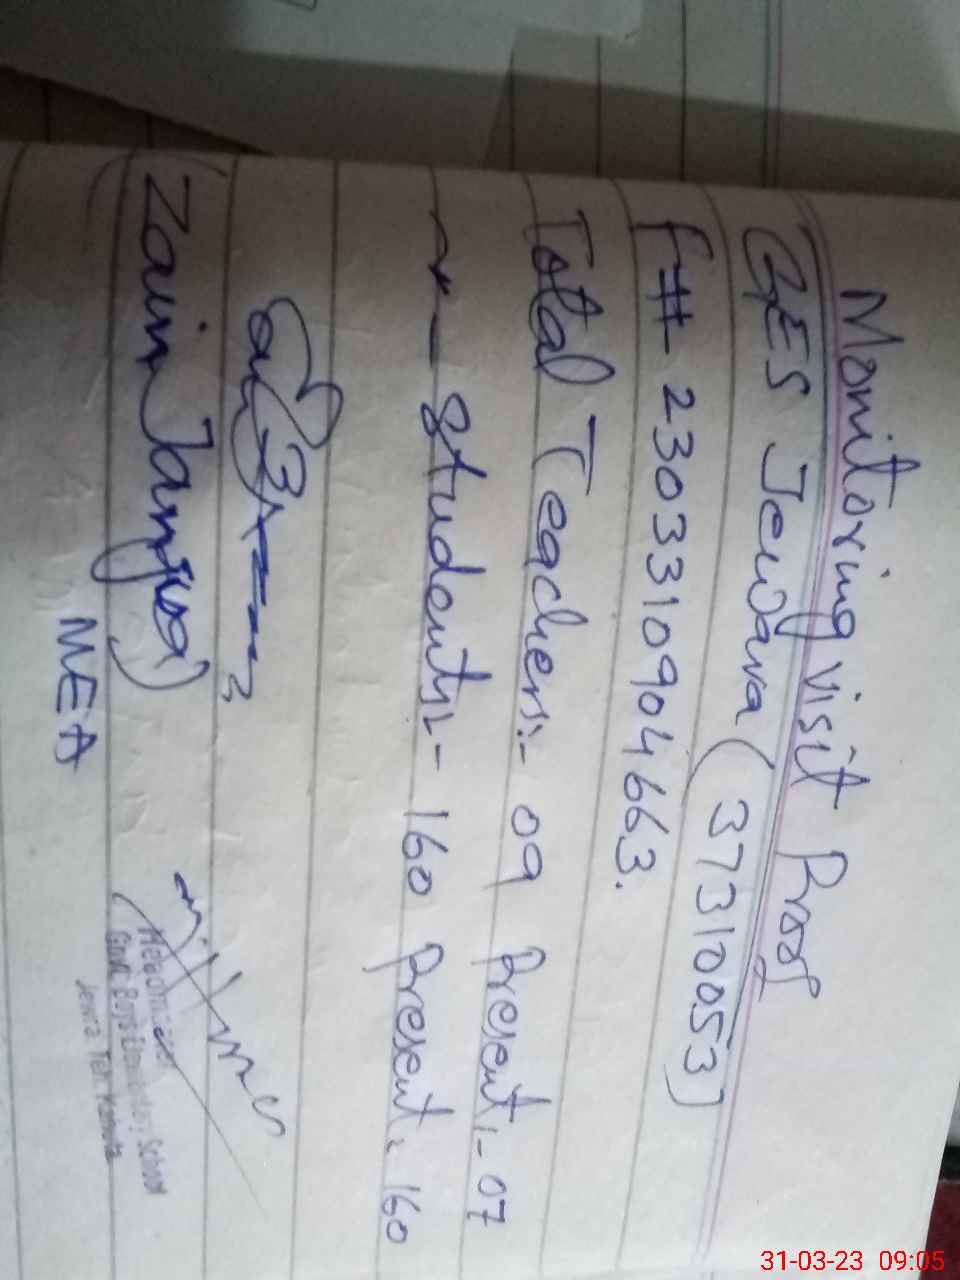 Monitoring visit Proof
GES Jewara (37310053)
F# 2303310904663.
Total Teachers:- 09 Present:- 07
~~ — Students:- 160 Present:- 160
Zain Janjua)
MEA
Headmaster
Govt. Boys Elementary School
Jewra Teh. Kahuta
31-03-23 09:05